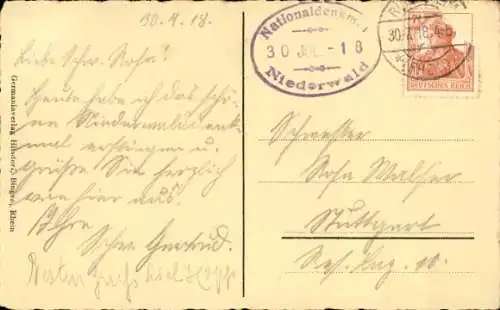 30.4.18.
Liebe Schw. Rosa!
Heute habe ich das schöne
Niederwalddenkmal
erstiegen u.
grüße Sie herzlich
von hier aus.
Ihre
Schw. Gertrud.
Germaniaverlag Hilsdorf, Bingen, Rhein
Nationaldenkmal
30 JUL -18
Niederwald
30.7.18.4-5
DEUTSCHES REICH
Schwester
Rosa Walser
Stuttgart
Res. Laz.